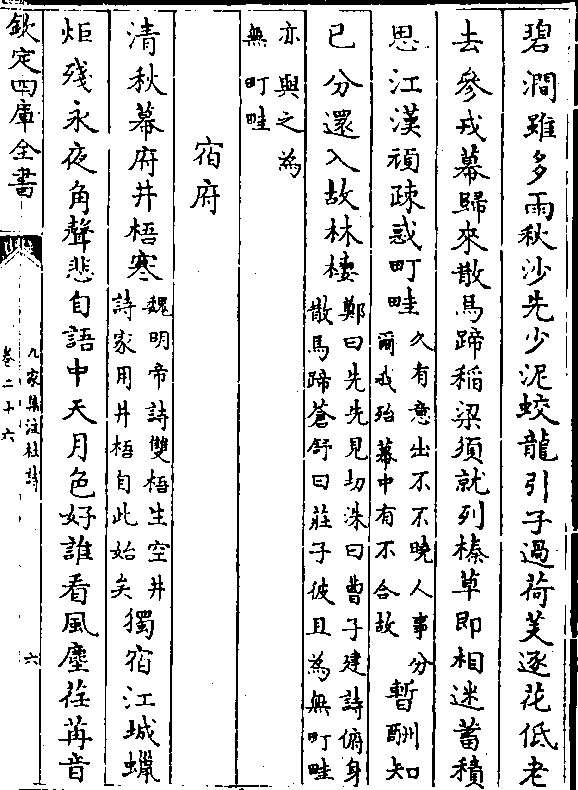 碧澗雖多雨秋沙先少泥蛟龍引子過荷芰逐花低老
去參戎幕歸來散馬蹄稻粱須就列榛草即相迷蓄積
思江漢頑疎惑町畦
久有意出不不曉人事分
爾我殆幕中有不合故
暫酬知
已分還入故林棲
鄭曰先先見切洙曰曹子建詩俯身
散馬蹄蒼舒曰莊子彼且為無町畦
亦與之為
無町畦
宿府
清秋幕府井梧寒
魏明帝詩雙梧生空井
詩家用井梧自此始矣
獨宿江城蠟
炬殘永夜角聲悲自語中天月色好誰看風塵荏苒音
欽定四庫全書
九家集注杜詩
卷二十六
六